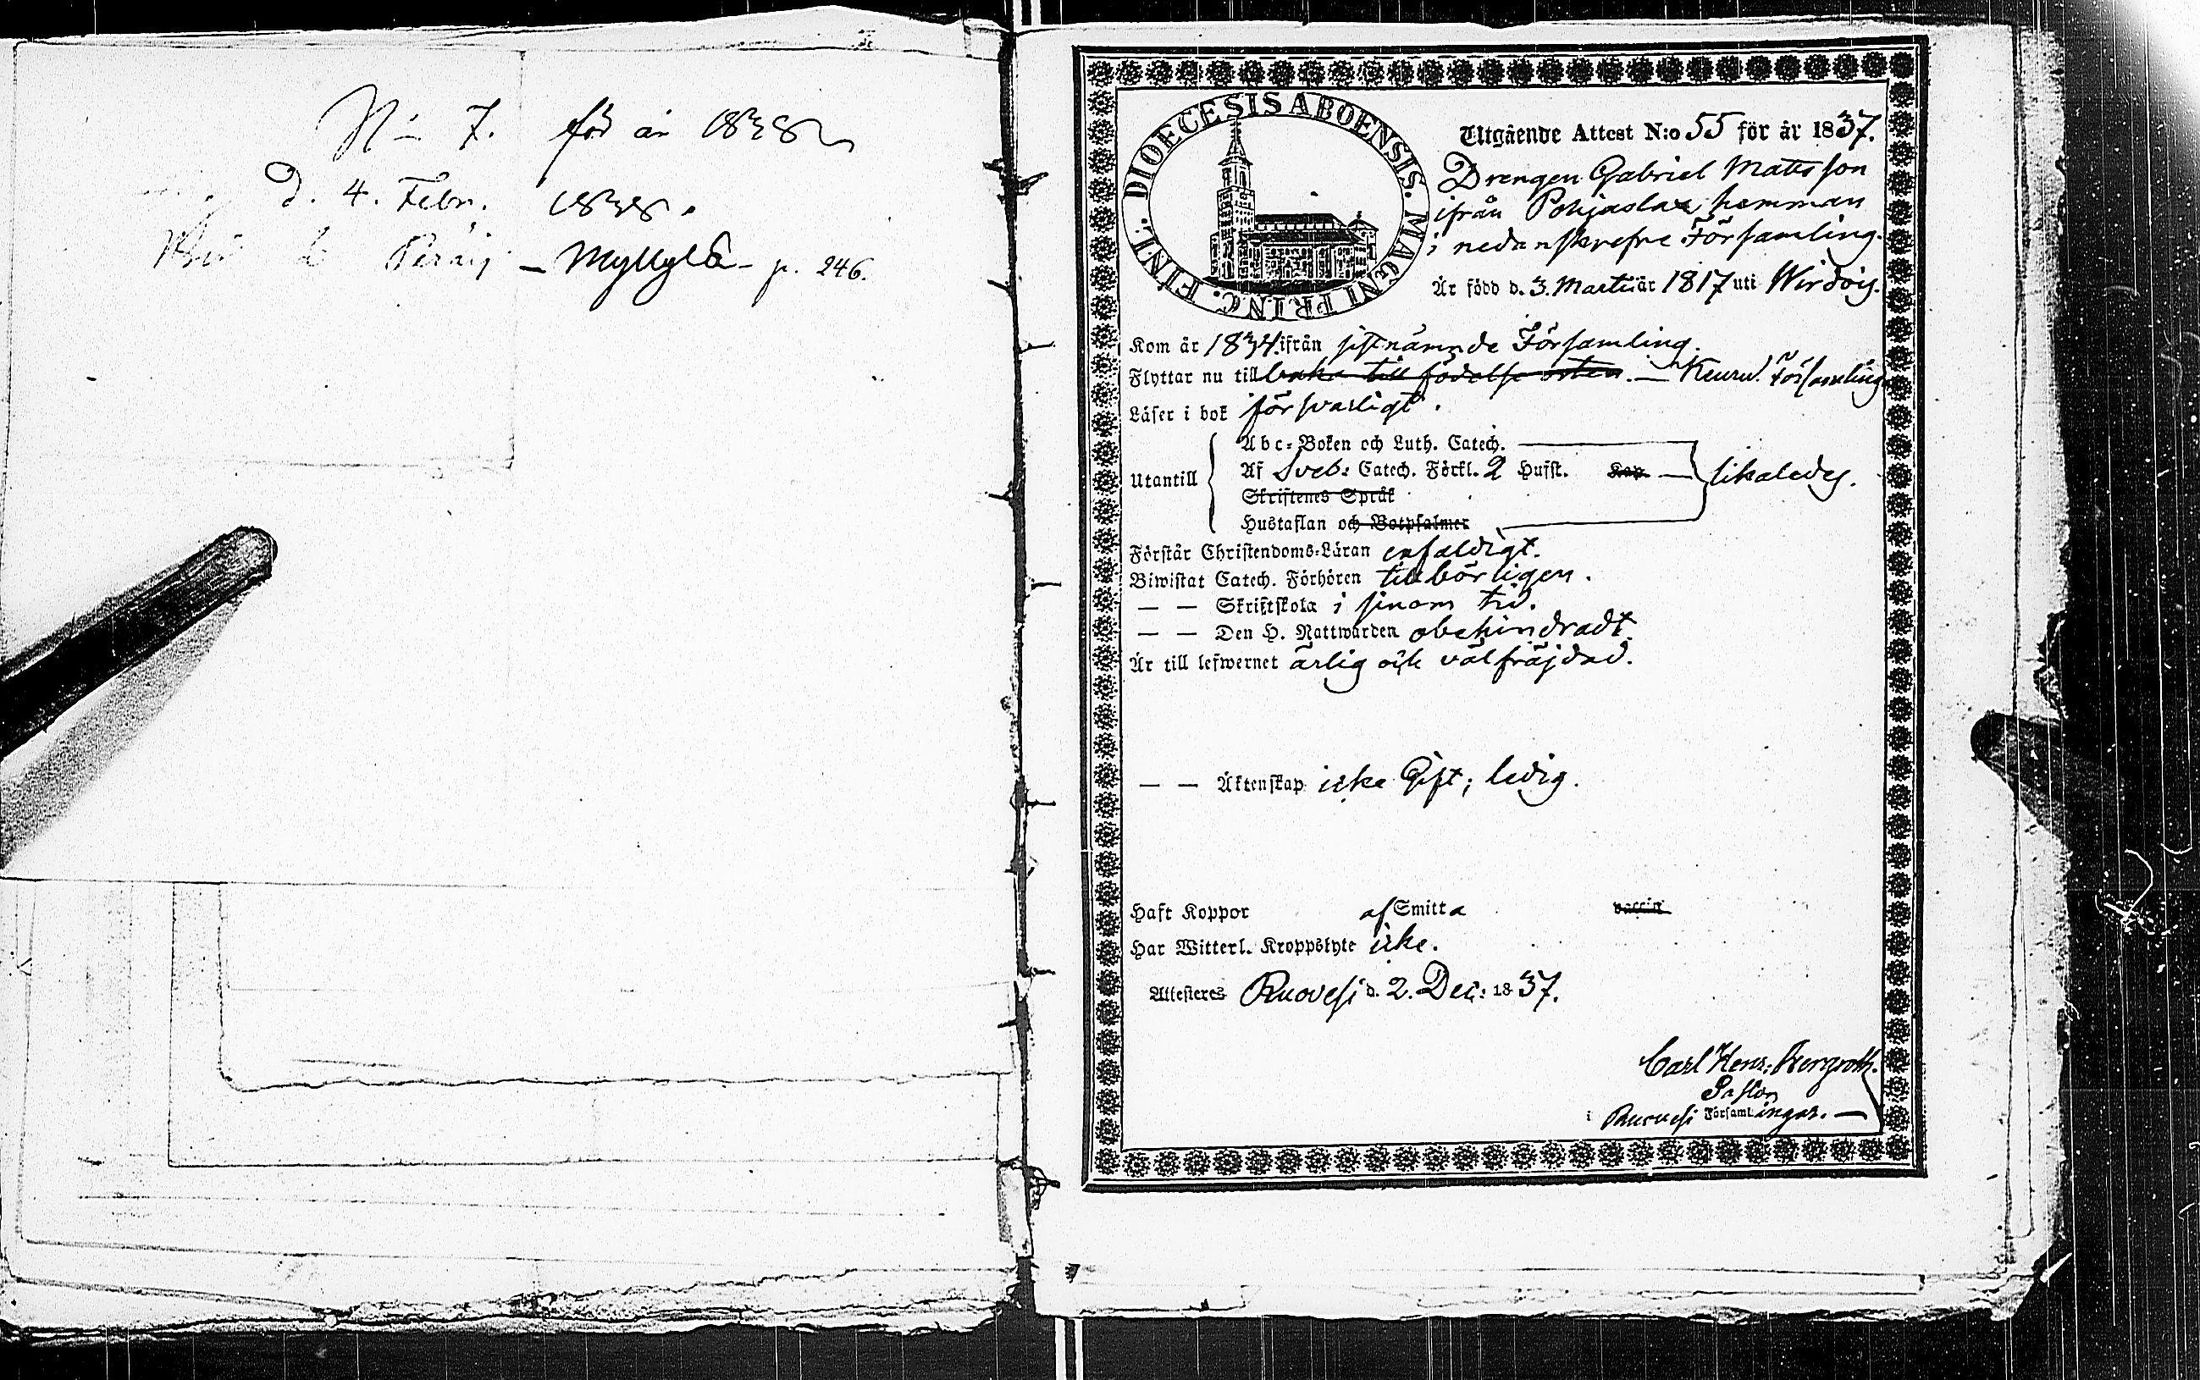 N:o 7. för år 1838
d. 4. Febr. 1838.
- Myllylä - p. 246.
DIOECESIS ABOENSIS. MAGNI PRINC. FINL.
Utgående Attest N:o 55 för år 1837.
Drengen Gabriel Matts son
ifrån Pohjaslax hemman
i nedanskrefne Församling.
Är född d. 3. Martii år 1817 uti Wirdois.
Kom år 1834. ifrån sistnämnde Församling.
Flyttar nu till baka till födelse orten. — Keuru Församling
Läser i bok försvarligt.
Abc-Boken och Luth. Catech.
Utantill Af Sveb: Catech. Förkl. 2 Hufst. Kap — likaledes.
Skriftenes Språk
Hustaflan och Botpsalmer
Förstår Christendoms-Läran enfaldigt.
Biwistat Catech. Förhören tillbörligen.
— — Skriftskola i sinom tid.
— — Den H. Nattwarden obehindradt.
Är till lefwernet ärlig och välfräjdad.
— — Äktenskap icke Gift; ledig.
Haft Koppor af Smitta vaccin
Har Witterl. Kroppslyte icke.
Attesteres Ruovesi d. 2. Dec: 1837.
Carl Henr: Bergroth.
Pastor
i Ruovesi Församlingar. —